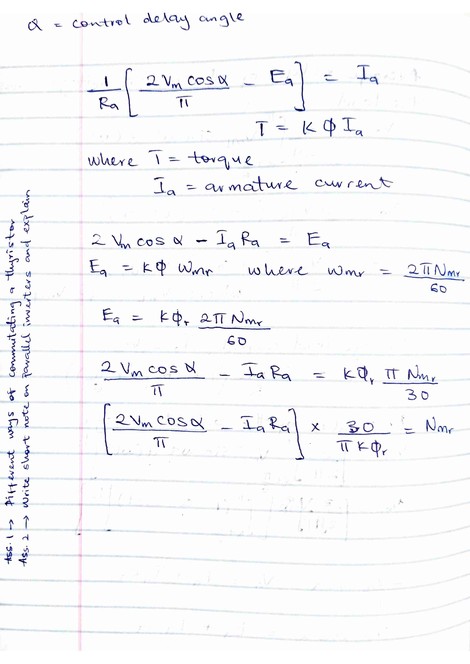 α = control delay angle
1/Ra [ 2Vm cos α / π − Ea ] = Ia
T = K Φ Ia
where T = torque
Ia = armature current
2 Vm cos α − Ia Ra = Ea
Ea = KΦ Wmr where Wmr = 2π Nmr / 60
Ea = KΦr 2π Nmr / 60
2 Vm cos α / π − Ia Ra = KΦr π Nmr / 30
[ 2Vm cos α / π − Ia Ra ] × 30 / π K Φr = Nmr
Ass. 1 → Different ways of commutating a thyristor
Ass. 2 → Write short note on parallel inverters and explain